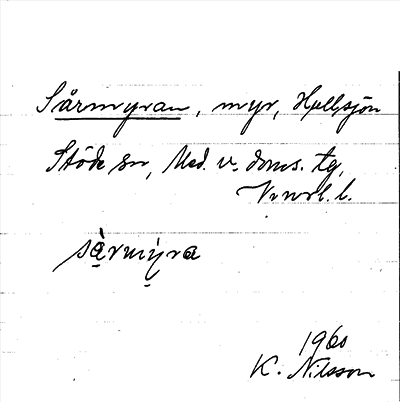 Sårmyran, myr, Hullsjön
Stöde sn, Med. v. doms. tg,
Vnorl. l.
sårmyra
1960
K. Nilsson